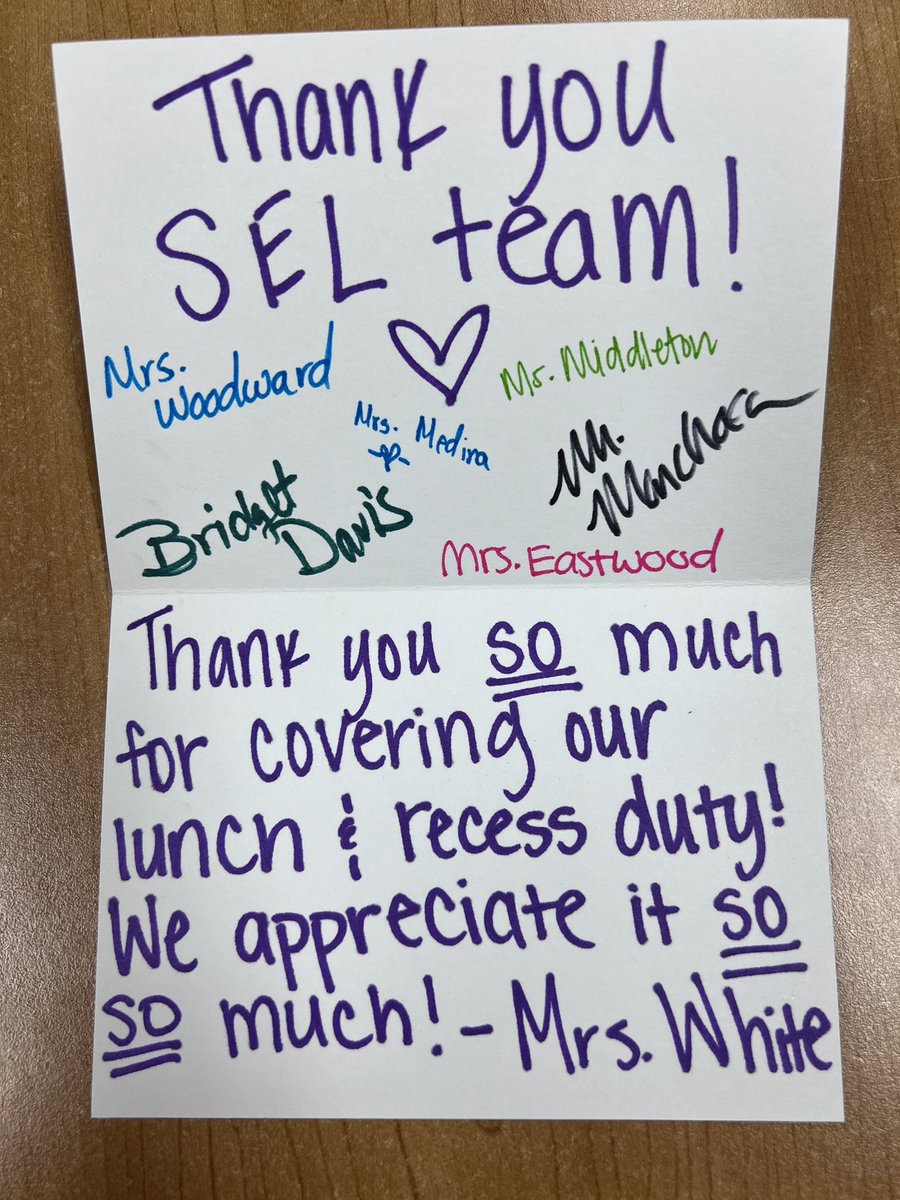 Thank you
SEL team!
Mrs.
Woodward
Ms. Middleton
Mrs. Medina
Bridget
Davis
Mrs. Eastwood
Thank you so much
for covering our
lunch & recess duty!
We appreciate it so
so much! - Mrs. White